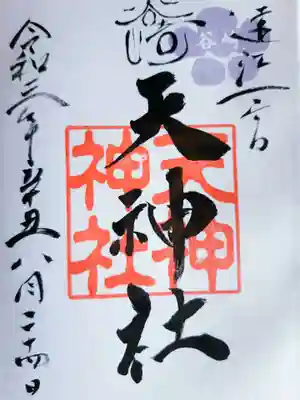 遠江一宮
天神社
天神
神社
令和三年辛丑八月二十四日